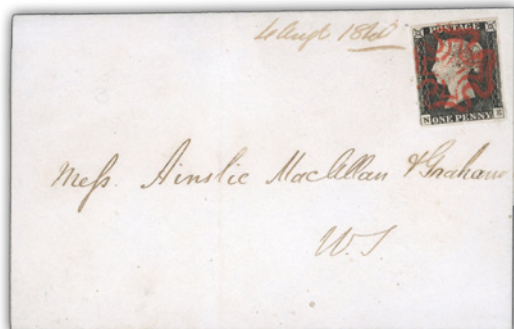 4 Augt 1840
POSTAGE
N ONE PENNY E
Mess. Ainslie Macallan & Graham
W.S